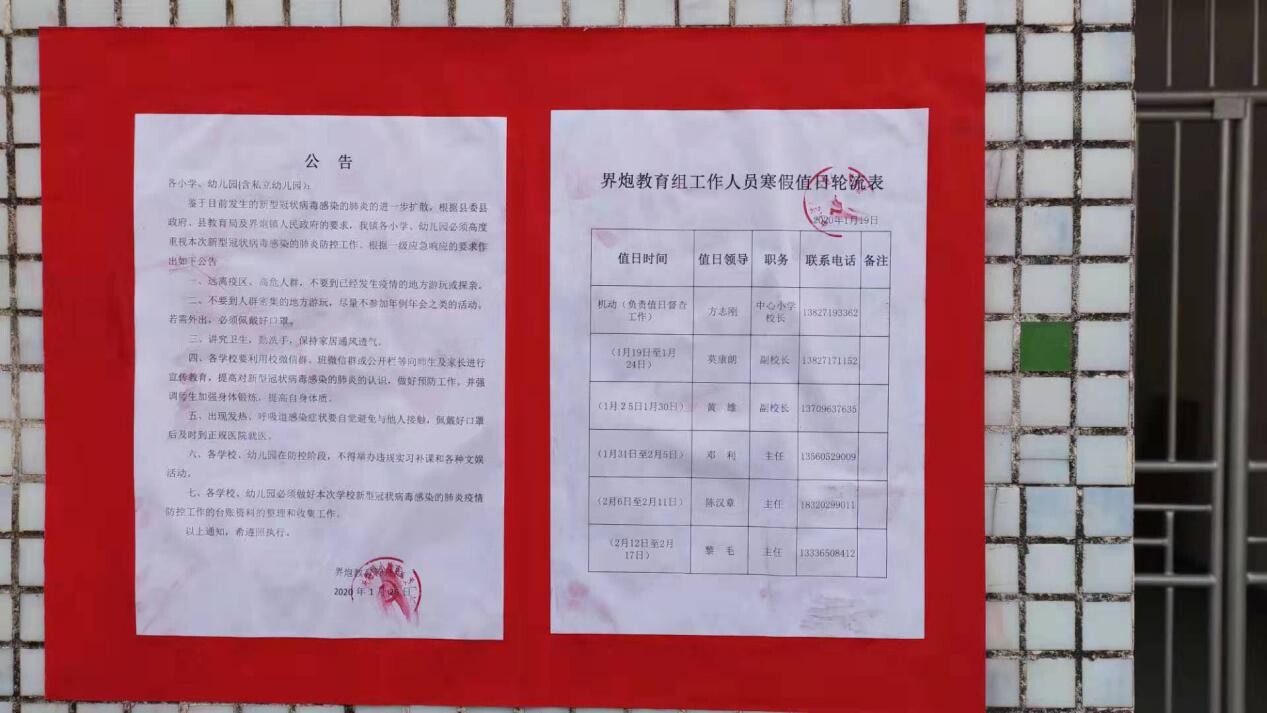 公 告
各小学、幼儿园(含私立幼儿园):
鉴于目前发生的新型冠状病毒感染的肺炎的进一步扩散，根据县委县
政府、县教育局及界炮镇人民政府的要求，我镇各小学、幼儿园必须高度
重视本次新型冠状病毒感染的肺炎防控工作。根据一级应急响应的要求作
出如下公告
一、远离疫区、高危人群，不要到已经发生疫情的地方游玩或探亲。
二、不要到人群密集的地方游玩，尽量不参加年例年会之类的活动，
若需外出，必须佩戴好口罩。
三、讲究卫生，勤洗手，保持家居通风透气。
四、各学校要利用校微信群、班微信群或公开栏等向师生及家长进行
宣传教育，提高对新型冠状病毒感染的肺炎的认识，做好预防工作，并强
调师生加强身体锻炼，提高自身体质。
五、出现发热、呼吸道感染症状要自觉避免与他人接触，佩戴好口罩
后及时到正规医院就医。
六、各学校、幼儿园在防控阶段，不得举办违规实习补课和各种文娱
活动。
七、各学校、幼儿园必须做好本次学校新型冠状病毒感染的肺炎疫情
防控工作的台账资料的整理和收集工作。
以上通知，希遵照执行。
界炮教
2020 年 1 月 26 日
界炮教育组工作人员寒假值日轮流表
2020年1月19日
值日时间 值日领导 职务 联系电话 备注
机动（负责值日督查 方志刚 中心小学 13827193362
工作） 校长
（1月19日至1月 莫康朗 副校长 13827171152
24日）
（1月25日1月30日） 黄 雄 副校长 13709637635
（1月31日至2月5日） 邓 利 主任 13560529009
（2月6日至2月11日） 陈汉章 主任 18320299011
（2月12日至2月 黎 毛 主任 13336508412
17日）